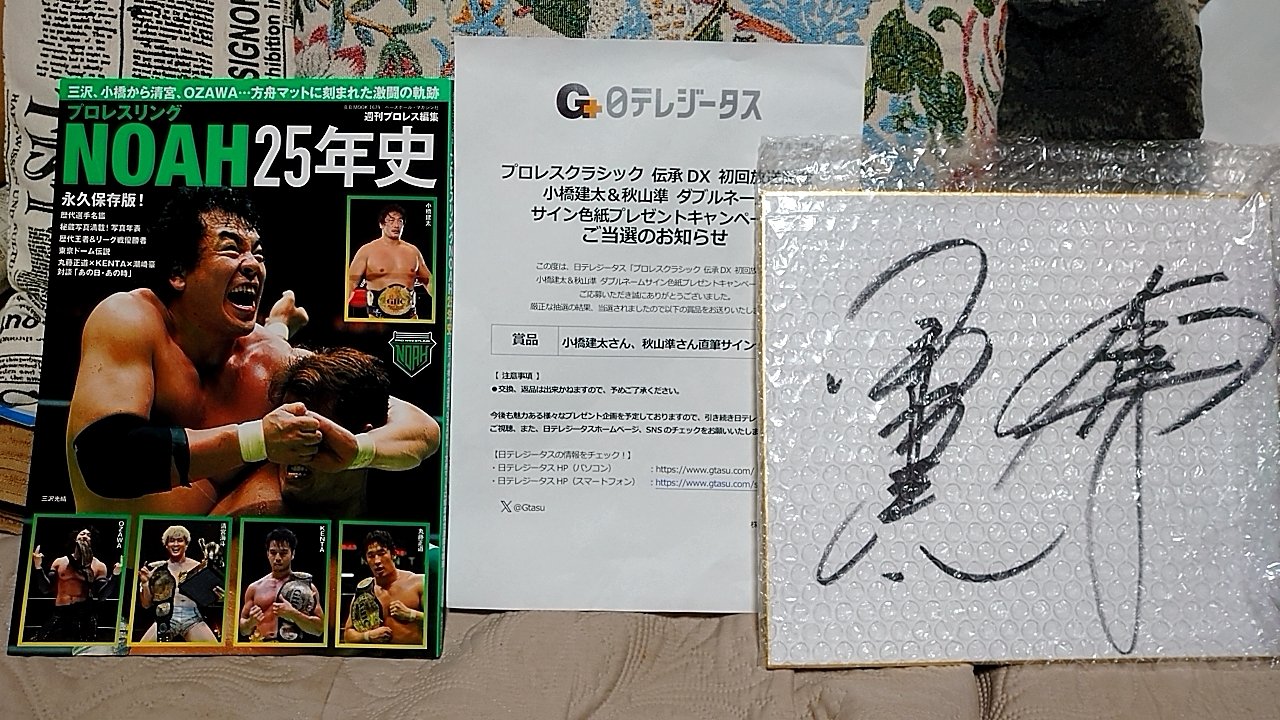 三沢、小橋から清宮、OZAWA…方舟マットに刻まれた激闘の軌跡
プロレスリング
週刊プロレス編集
NOAH25年史
永久保存版!
歴代選手名鑑
秘蔵写真満載!写真年表
歴代王者&リーグ戦優勝者
東京ドーム伝説
丸藤正道×KENTA×潮崎豪
対談「あの日・あの時」
小橋建太
GHC
NOAH
三沢光晴
OZAWA
清宮海斗
KENTA
丸藤正道
G+日テレジータス
プロレスクラシック 伝承DX 初回放
小橋建太&秋山準 ダブルネー
サイン色紙プレゼントキャンペー
ご当選のお知らせ
この度は、日テレジータス「プロレスクラシック 伝承DX 初回
小橋建太&秋山準 ダブルネームサイン色紙プレゼントキャンペー
ご応募いただき誠にありがとうございました。
厳正な抽選の結果、当選されましたので以下の賞品をお送りいたしま
賞品
小橋建太さん、秋山準さん直筆サイン
【 注意事項 】
●交換、返品は出来かねますので、予めご了承ください。
今後も魅力ある様々なプレゼント企画を予定しておりますので、引き続き日テレ
ご視聴、また、日テレジータスホームページ、SNSのチェックをお願いいたしま
【日テレジータスの情報をチェック!】
・日テレジータス HP(パソコン) : https://www.gtasu.com/
・日テレジータス HP(スマートフォン) : https://www.gtasu.com/s
X @Gtasu
株